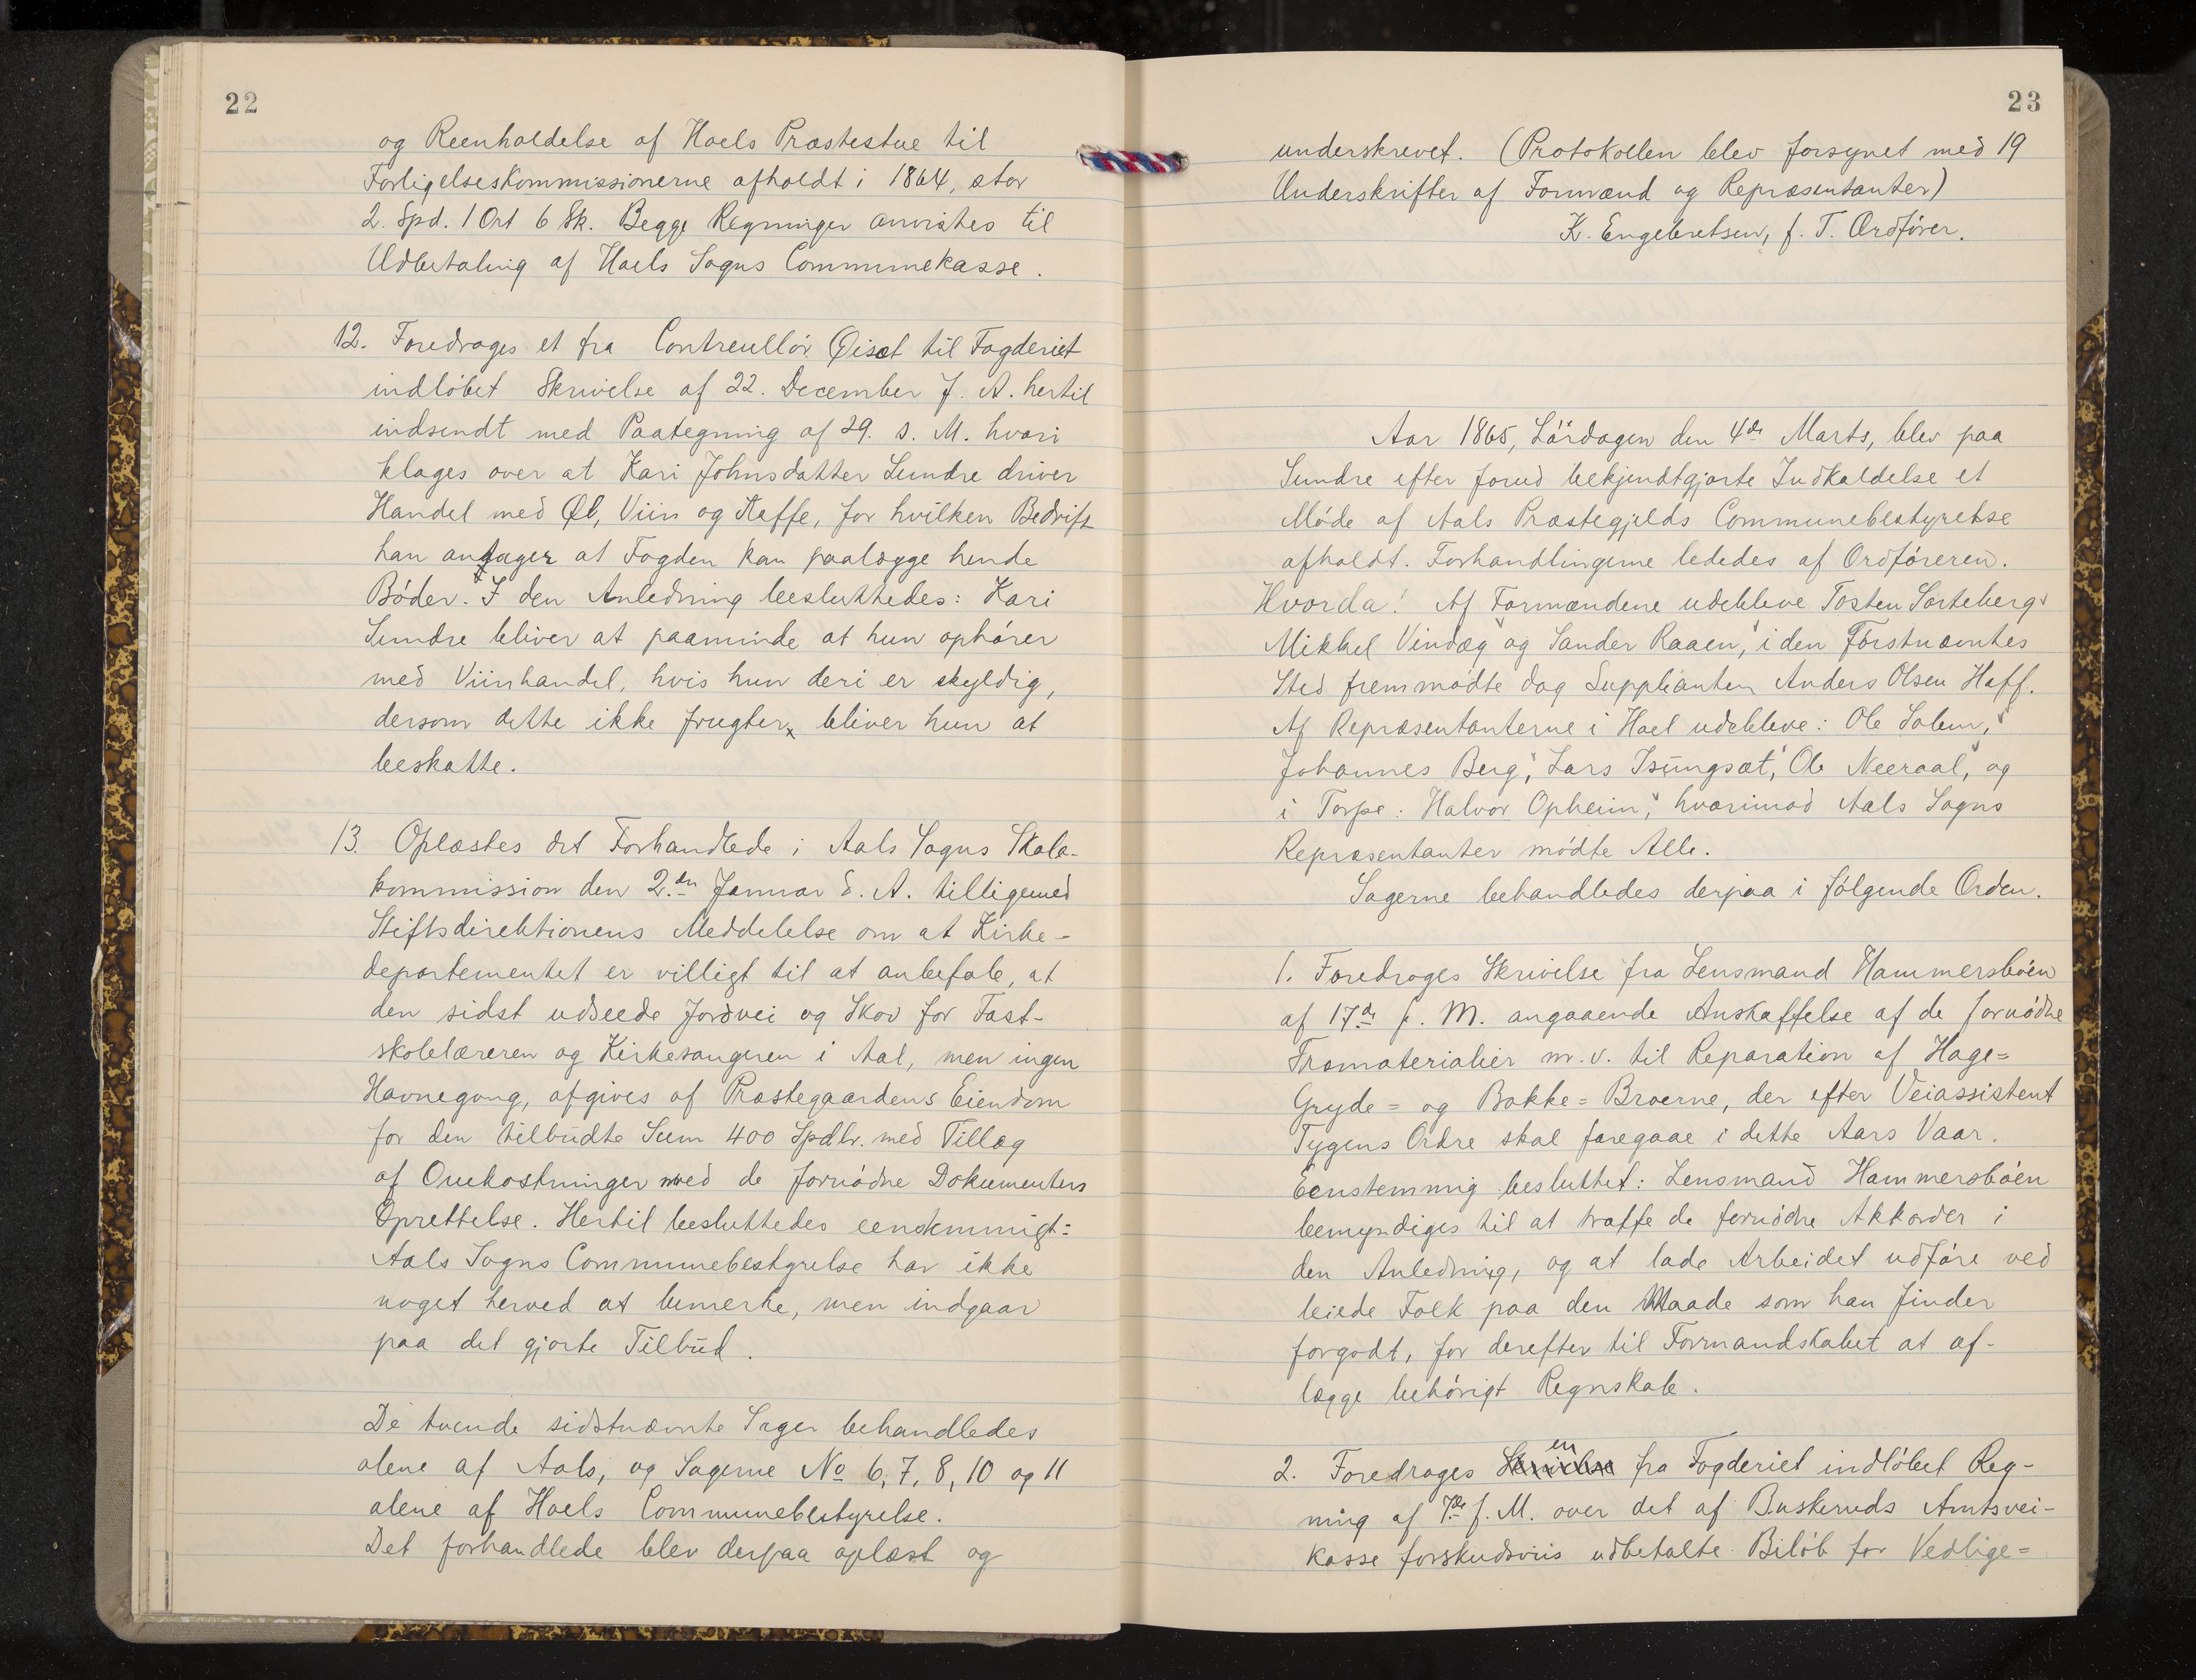 22
og Reenholdelse af Hoels Præstestue til
Forligelseskommissionerne afholdt i 1864, stor
2 Spd. 1 Ort 6 Sk. Begge Regninger anvistes til
Udbetaling af Hoels Sogns Communekasse.
12. Foredroges et fra Contreullör Øisæt til Fogderiet
indlöbet Skrivelse af 22. December f. A. hertil
indsendt med Paategning af 29. s. M. hvori
klages over at Kari Johnsdatter Sundre driver
Handel med Øl, Viin og Kaffe, for hvilken Bedrift
han antager at Fogden kan paalægge hende
Böder. I den Anledning besluttedes: Kari
Sundre bliver at paaminde at hun ophörer
med Viinhandel, hvis hun deri er skyldig,
dersom dette ikke frugter, bliver hun at
beskatte.
13. Oplæstes det Forhandlede i Aals Sogns Skole-
kommission den 2.den Januar d. A. tilligemed
Stiftsdirektionens Meddelelse om at Kirke-
departementet er villigt til at anbefale, at
den sidst udseede Jordvei og Skov for Fast-
skolelæreren og Kirkesangeren i Aal, men ingen
Havnegang, afgives af Præstegaardens Eiendom
for den tilbudte Sum 400 Spdlr. med Tillæg
af Omkostninger med de fornödne Dokumenters
Oprettelse. Hertil besluttedes eenstemmigt:
Aals Sogns Communebestyrelse har ikke
noget herved at bemerke, men indgaar
paa det gjorte Tilbud.
De tvende sidstnævnte Sager behandledes
alene af Aals, og Sagerne No 6, 7, 8, 10 og 11
alene af Hoels Communebestyrelse.
Det forhandlede blev derpaa oplæst og
23
underskrevet. (Protokollen blev forsynet med 19
Underskrifter af Formænd og Repræsentanter)
K. Engebretsen, f. T. Ordförer.
Aar 1865, Lördagen den 4de Marts, blev paa
Sundre efter forud bekjendtgjorte Indkaldelse et
Möde af Aals Præstegjelds Communebestyrelse
afholdt. Forhandlingerne lededes af Ordföreren.
Hvorda! Af Formændene udebleve Tosten Sorteberg,
Mikkel Vindæg og Sander Raaen, i den Förstnævntes
Sted fremmödte dog Supplianten Anders Olsen Hoff.
Af Repræsentanterne i Hoel udebleve: Ole Solem,
Johannes Berg, Lars Isungsæt, Ole Neeraal, og
i Torpe: Halvor Opheim, hvorimod Aals Sogns
Repræsentanter mödte Alle.
Sagerne behandledes derpaa i fölgende Orden.
1. Foredroges Skrivelse fra Lensmand Hammersböen
af 17de f. M. angaaende Anskaffelse af de fornödne
Træmaterialier m.v. til Reparation af Hage=
Gryde= og Bakke=Broerne, der efter Veiassistent
Tygens Ordre skal foregaae i dette Aars Vaar.
Eenstemmig besluttet: Lensmand Hammersböen
bemyndiges til at træffe de fornödne Akkorder i
den Anledning, og at lade Arbeidet udföre ved
leiede Folk paa den Maade som han finder
forgodt, for derefter til Formandskabet at af-
lægge behörigt Regnskab.
2. Foredroges Skrivelse en fra Fogderiet indlöbet Reg-
ning af 7de f. M. over det af Buskeruds Amtsvei-
kasse forskudsviis udbetalte Belöb for Vedlige=